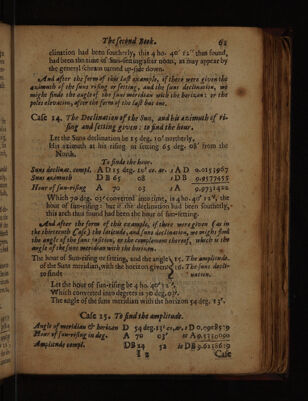 The second Book. 62
clination had been southerly, this 4 ho. 40' 12" thus found,
had been the time of Sun-setting after noon, as may appear by
the general scheam turned up-side down.
And after the form of this last example, if there were given the
azimuth of the suns rising or setting, and the suns declination, we
might finde the angle of the suns meridian with the horizon: or the
poles elevation, after the form of the last but one.
Case 14. The Declination of the Sun, and his azimuth of ri-
sing and setting given: to find the hour.
Let the Suns declination be 15 deg. 10' northerly.
His azimuth at his rising or setting 65 deg. 08' from the
North.
To finde the hour.
Suns declinat. compl. A D 15 deg. 10' co. ar. s A D 0.0153967
Suns azimuth D B 65 08 s D B 9.9577455
Hour of sun-rising A 70 03 s A 9.9731422
Which 70 deg. 03' converted into time, is 4 ho. 40' 12", the
hour of sun-rising: but if the declination had been southerly,
this arch thus found had been the hour of sun-setting.
And after the form of this example, if there were given (as in
the thirteenth Case) the latitude, and suns declination, we might find
the angle of the suns position, or the complement thereof, which is the
angle of the suns meridian with the horizon.
The hour of Sun-rising or setting, and the angle 15. The amplitude.
of the Suns meridian, with the horizon given: 16. The suns decli-
to finde nation.
Let the hour of sun-rising be 4 ho. 40' 12".
Which converted into degrees is 70 deg. 03'.
The angle of the suns meridian with the horizon 54 deg. 13'.
Case 15. To find the amplitude.
Angle of meridian & horizon D 54 deg. 13'
Hour of sun-rising in deg. A 70 03'
Amplitude compl. D B 24 52
I 2 Case